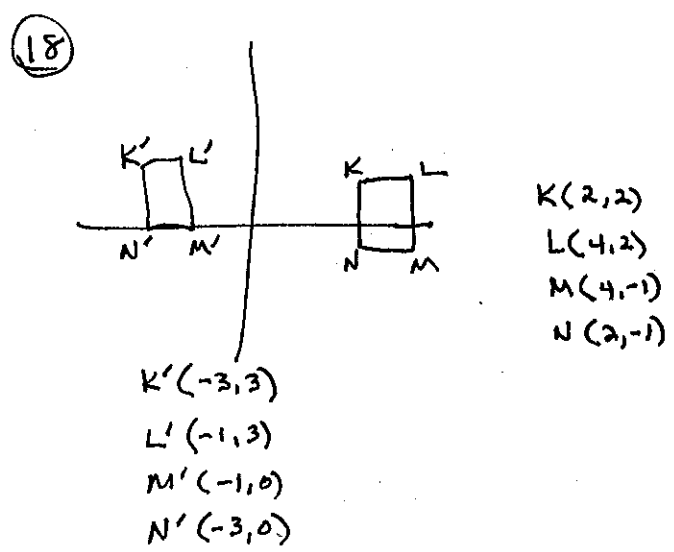 18
K' L'
K L
N' M'
N M
K(2,2)
L(4,2)
M(4,-1)
N(2,-1)
K'(-3,3)
L'(-1,3)
M'(-1,0)
N'(-3,0)